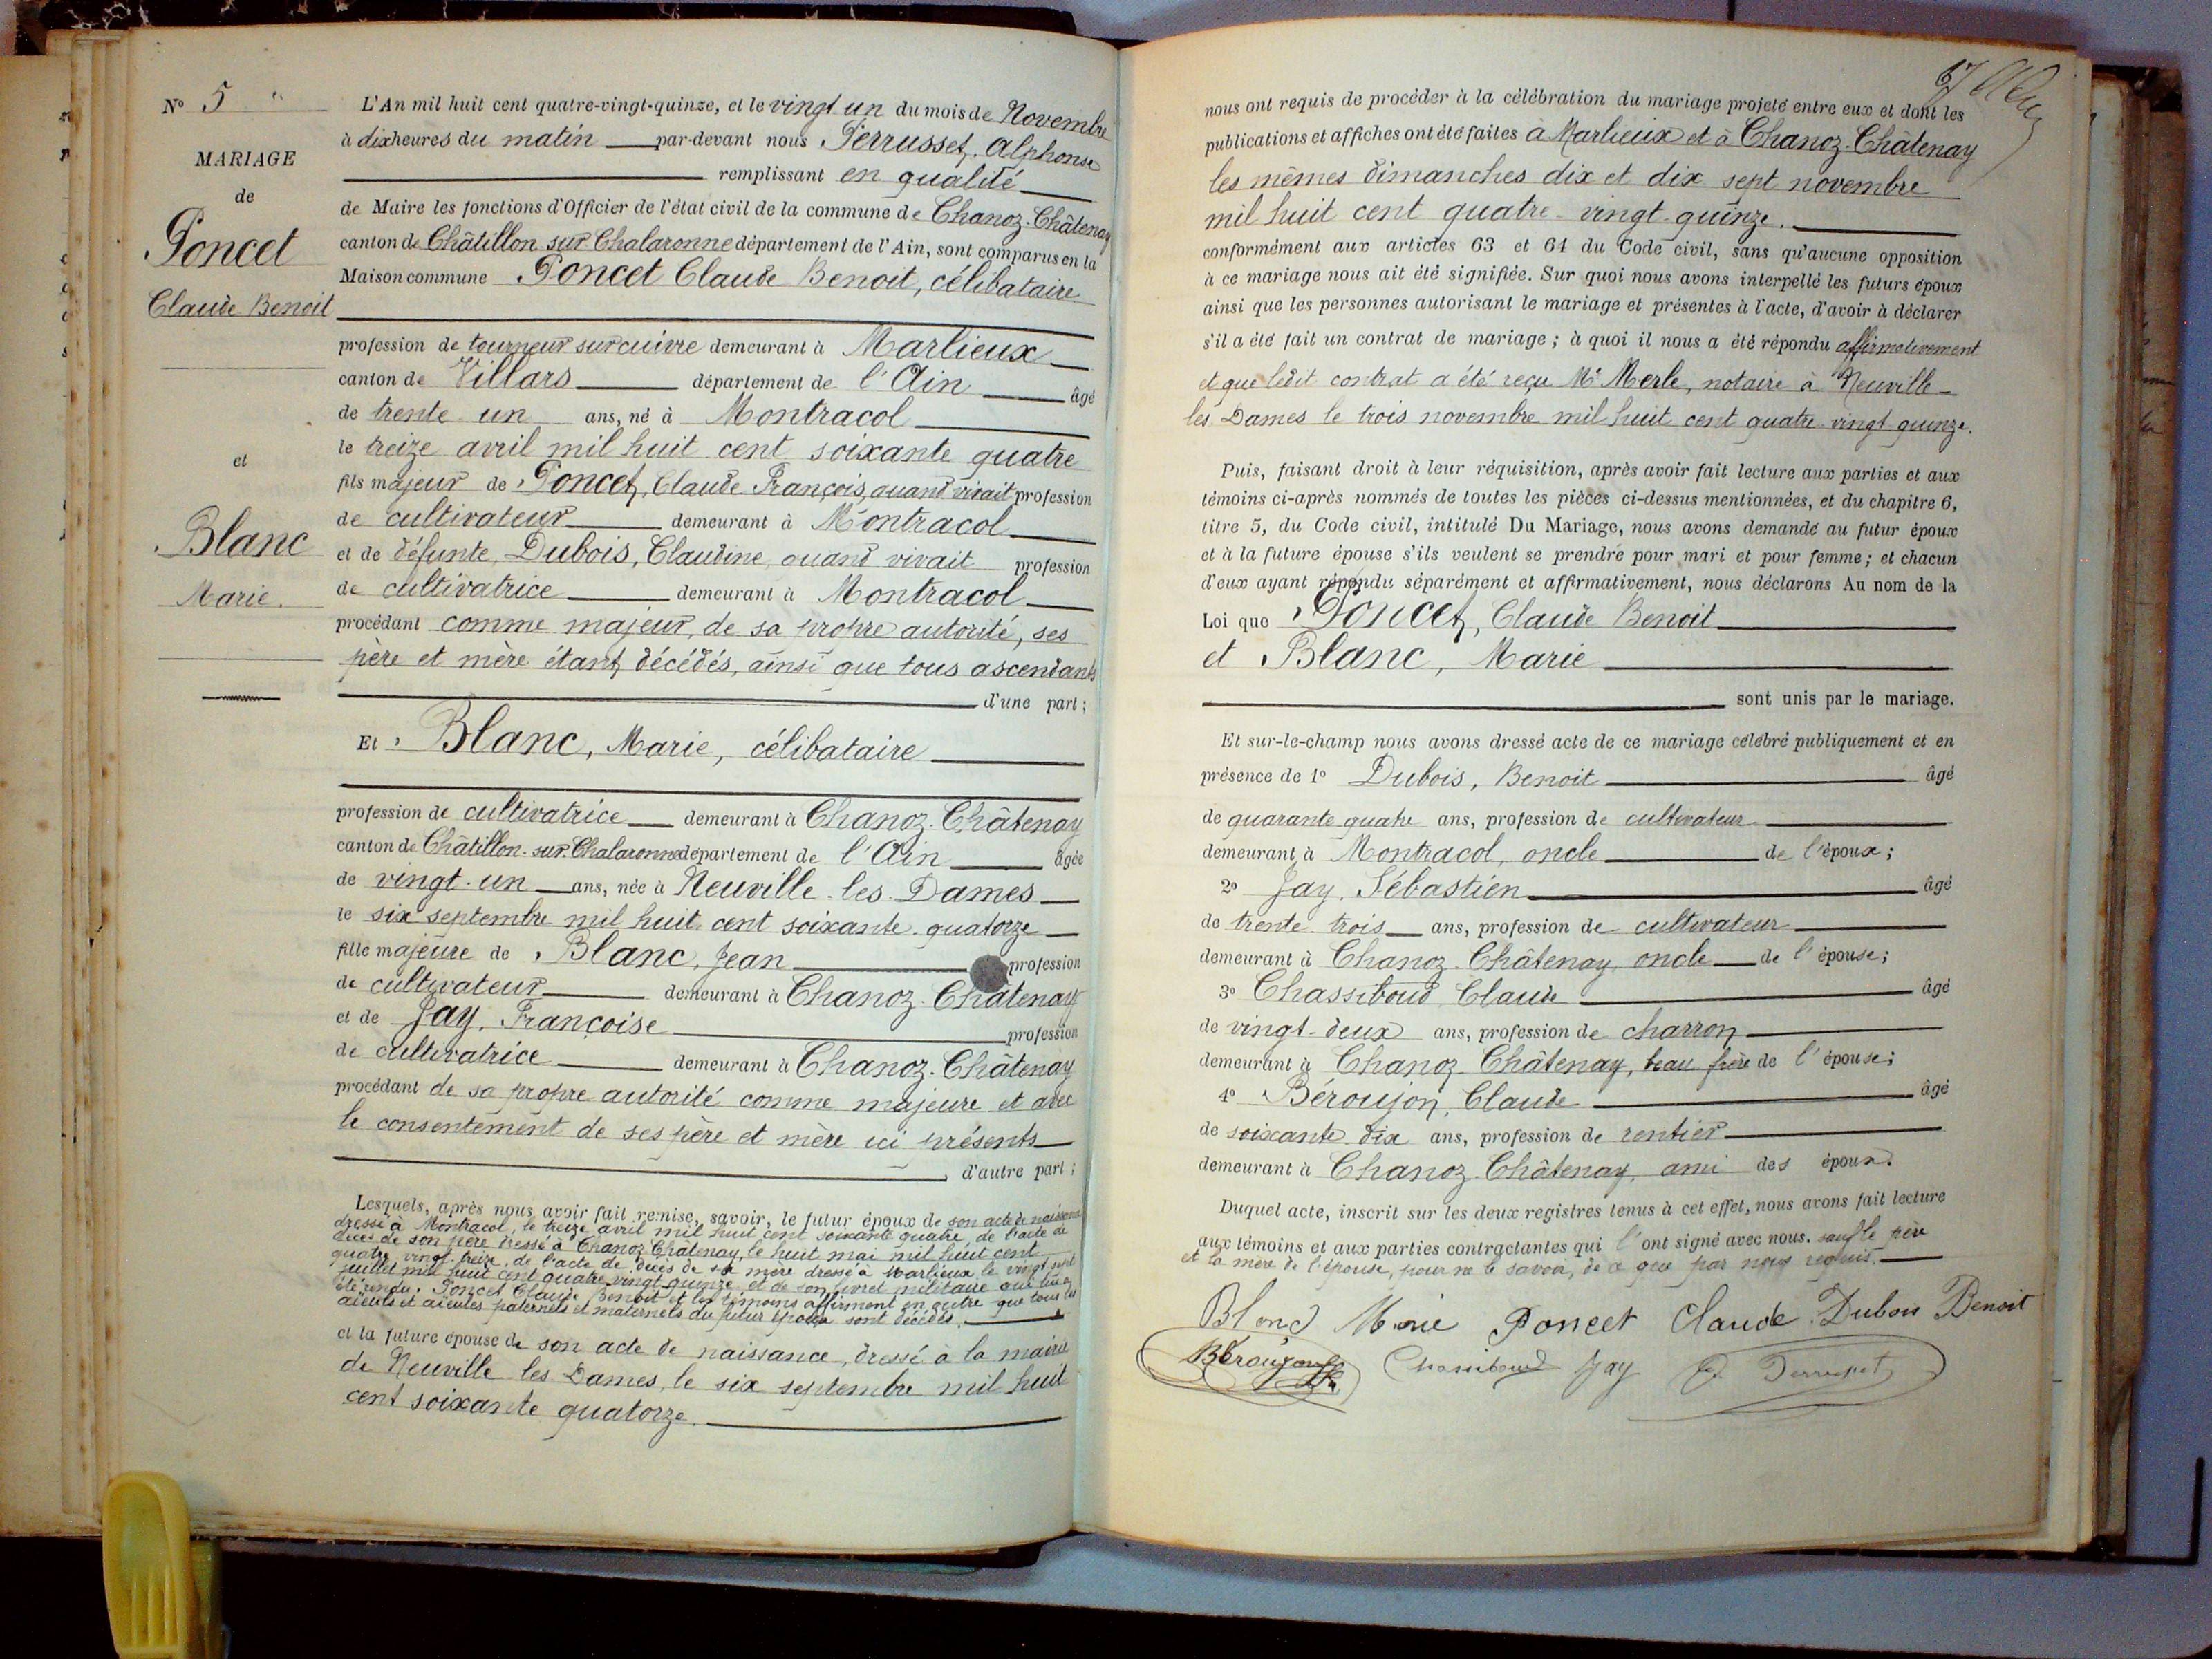 N° 5
MARIAGE
de
Poncet
Claude Benoit
et
Blanc
Marie.
L'An mil huit cent quatre-vingt-quinze, et le vingt un du mois de Novembre
à dix heures du matin par-devant nous Perrusset, Alphonse
remplissant en qualité
de Maire les fonctions d'Officier de l'état civil de la commune de Chanoz-Châtenay
canton de Châtillon sur Chalaronne département de l'Ain, sont comparus en la
Maison commune Poncet Claude Benoit, célibataire
profession de tourneur sur cuivre demeurant à Marlieux
canton de Villars département de l'Ain âgé
de trente un ans, né à Montracol
le treize avril mil huit cent soixante quatre
fils majeur de Poncet, Claude François, quand vivait profession
de cultivateur demeurant à Montracol
et de défunte Dubois, Claudine, quand vivait profession
de cultivatrice demeurant à Montracol
procédant comme majeur, de sa propre autorité, ses
père et mère étant décédés, ainsi que tous ascendants
d'une part;
Et Blanc, Marie, célibataire
profession de cultivatrice demeurant à Chanoz-Châtenay
canton de Châtillon-sur-Chalaronne département de l'Ain âgée
de vingt-un ans, née à Neuville-les-Dames
le six septembre mil huit cent soixante-quatorze
fille majeure de Blanc, Jean profession
de cultivateur demeurant à Chanoz-Châtenay
et de Jay, Françoise profession
de cultivatrice demeurant à Chanoz-Châtenay
procédant de sa propre autorité comme majeure et avec
le consentement de ses père et mère ici présents
d'autre part;
Lesquels, après nous avoir fait remise, savoir, le futur époux de son acte de naissance
dressé à Montracol, le treize avril mil huit cent soixante quatre, de l'acte de
décès de son père dressé à Chanoz Châtenay, le huit mai mil huit cent
quatre vingt treize, de l'acte de décès de sa mère dressé à Marlieux le vingt sept
juillet mil huit cent quatre vingt quinze et de son livret militaire qui lui a
été rendu. Poncet Claude Benoit et les témoins affirment en outre que tous les
aïeuls et aïeules paternels et maternels du futur époux sont décédés.
et la future épouse de son acte de naissance, dressé à la mairie
de Neuville les Dames, le six septembre mil huit
cent soixante quatorze.
67
nous ont requis de procéder à la célébration du mariage projeté entre eux et dont les
publications et affiches ont été faites à Marlieux et à Chanoz-Châtenay
les mêmes dimanches dix et dix sept novembre
mil huit cent quatre-vingt-quinze.
conformément aux articles 63 et 64 du Code civil, sans qu'aucune opposition
à ce mariage nous ait été signifiée. Sur quoi nous avons interpellé les futurs époux
ainsi que les personnes autorisant le mariage et présentes à l'acte, d'avoir à déclarer
s'il a été fait un contrat de mariage; à quoi il nous a été répondu affirmativement
et que ledit contrat a été reçu Me Merle, notaire à Neuville-
les Dames le trois novembre mil huit cent quatre vingt quinze.
Puis, faisant droit à leur réquisition, après avoir fait lecture aux parties et aux
témoins ci-après nommés de toutes les pièces ci-dessus mentionnées, et du chapitre 6,
titre 5, du Code civil, intitulé Du Mariage, nous avons demandé au futur époux
et à la future épouse s'ils veulent se prendre pour mari et pour femme; et chacun
d'eux ayant répondu séparément et affirmativement, nous déclarons Au nom de la
Loi que Poncet, Claude Benoit
et Blanc, Marie
sont unis par le mariage.
Et sur-le-champ nous avons dressé acte de ce mariage célébré publiquement et en
présence de 1° Dubois, Benoit âgé
de quarante quatre ans, profession de cultivateur
demeurant à Montracol, oncle de l'époux;
2° Jay, Sébastien âgé
de trente trois ans, profession de cultivateur
demeurant à Chanoz-Châtenay, oncle de l'épouse;
3° Chassiboud Claude âgé
de vingt-deux ans, profession de charron
demeurant à Chanoz-Châtenay, beau frère de l'épouse;
4° Béroujon, Claude âgé
de soixante-dix ans, profession de rentier
demeurant à Chanoz-Châtenay, ami des époux.
Duquel acte, inscrit sur les deux registres tenus à cet effet, nous avons fait lecture
aux témoins et aux parties contractantes qui l'ont signé avec nous. sauf le père
et la mère de l'épouse, pour ne le savoir, de ce que par nous requis.
Blanc Marie Poncet Claude Dubois Benoit
Béroujon Chassiboud Jay A Perrusset